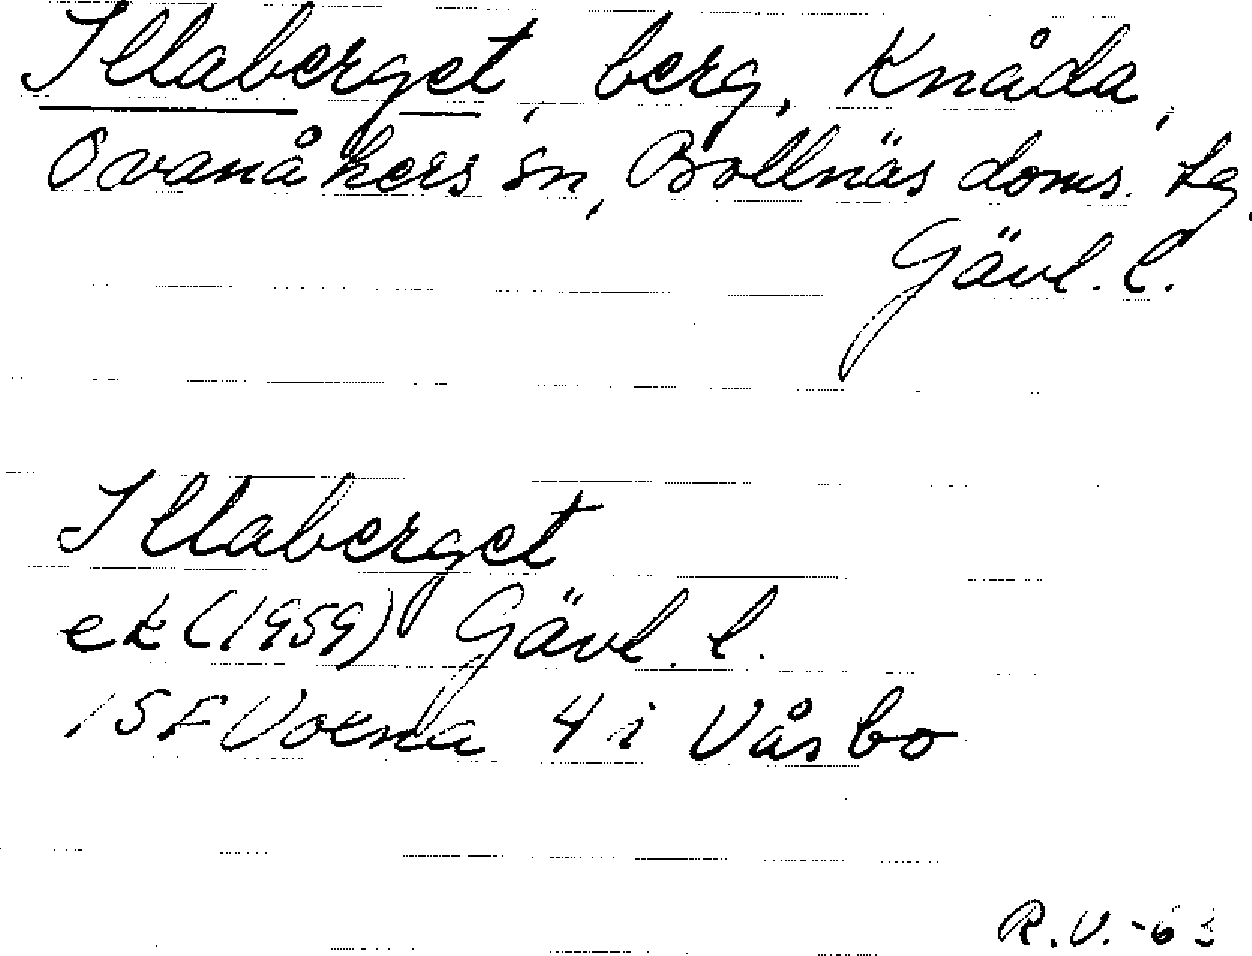 Illaberget, berg, Knåda,
Ovanåkers sn, Bollnäs doms. tg.
Gävl. l.
Illaberget
ek (1959) Gävl. l.
15F Voxna 4 i Våsbo
R.V. -63